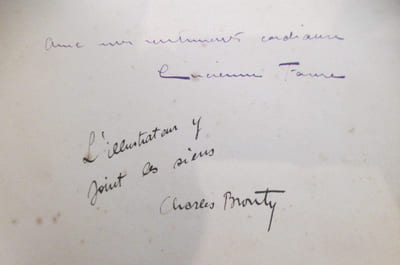 avec mes sentiments cordiaux
Lucienne Favre
L'illustrateur y
joint les siens
Charles Brouty